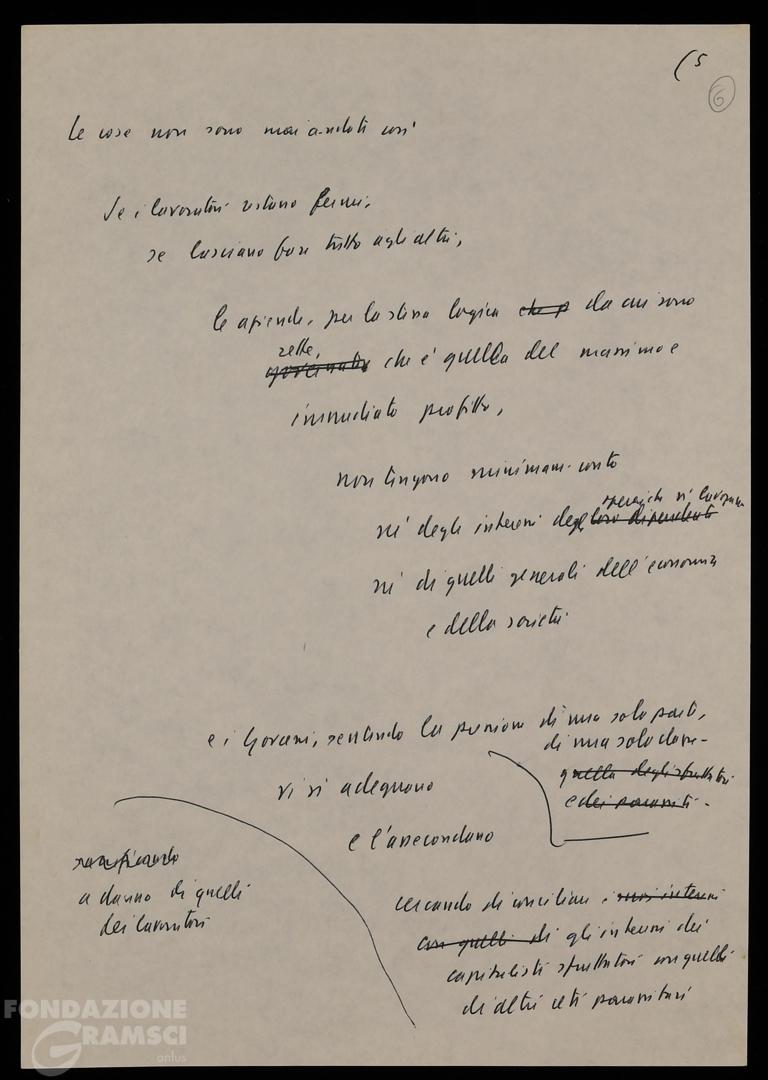 (5
6
le cose non sono mai andate così
Se i lavoratori restano fermi,
se lasciano fare tutto agli altri,
le aziende, per la stessa logica che p da cui sono
rette,
governate che è quella del massimo e
immediato profitto,
non tengono minimam. conto
né degli interessi degli loro dipendenti
operai che vi lavorano
né di quelli generali dell'economia
e della società
e i Governi, sentendo la pressione di una sola parte,
di una sola classe -
quella degli sfruttatori
e dei parassiti -
vi si adeguano
e l'assecondano
sacrificando
a danno di quelli
dei lavoratori
cercando di conciliare i suoi interessi
con quelli di gli interessi dei
capitalisti sfruttatori con quelli
di altri ceti parassitari
FONDAZIONE
GRAMSCI
onlus